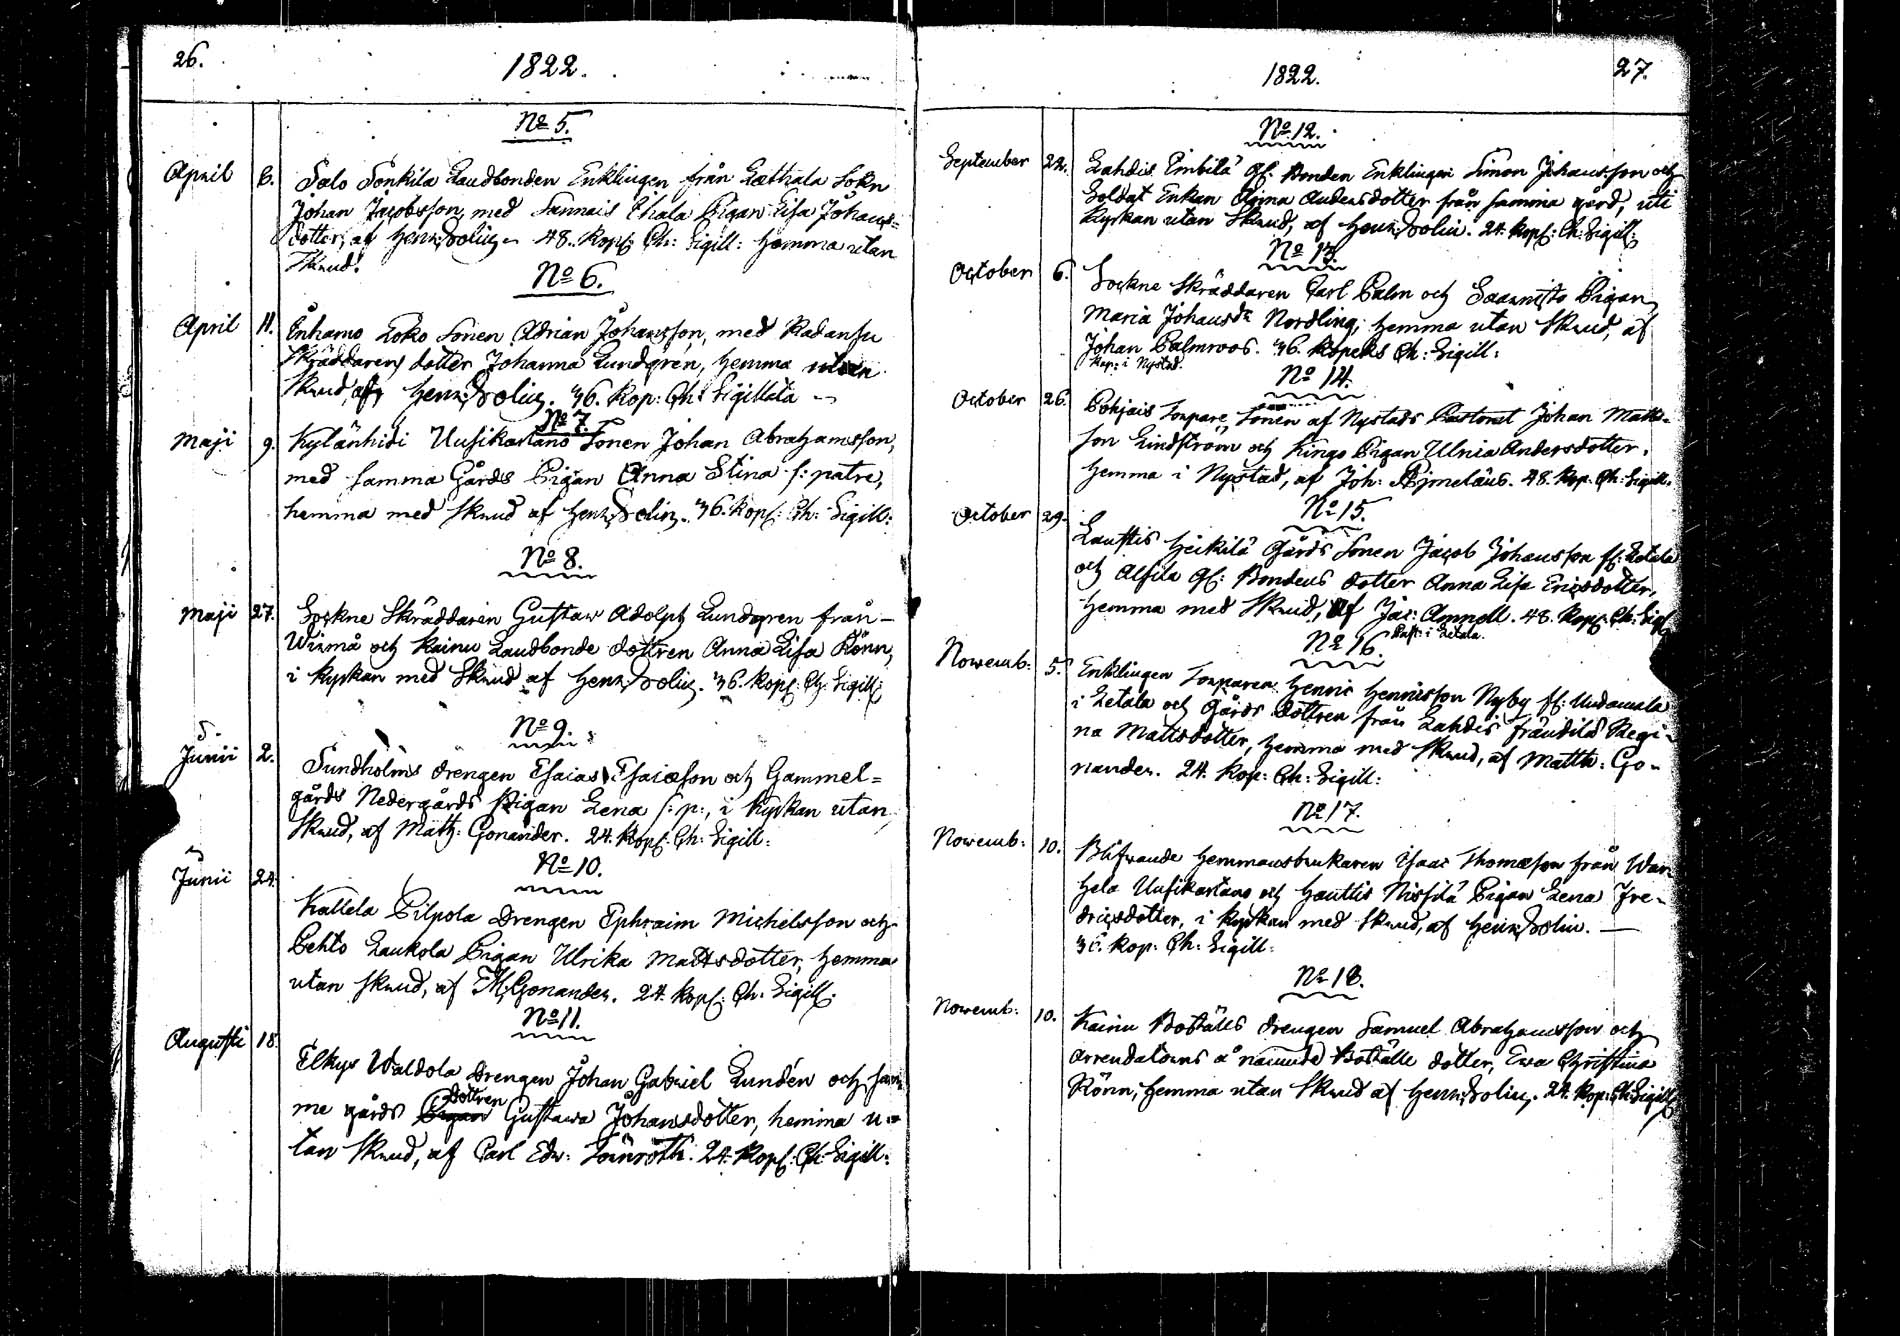 26.
1822.
No 5.
April 6. Salo Sonkila Landbonden Enklingen från Letthala Sokn
Johan Jacobsson, med Sannais Ehala Pigan Lisa Johans=
dotter, af Henr: Solin. 48. Kop: Ch: Sigill: hemma utan
Skrud.
No 6.
April 11. Enhamo Loko Sonen Adrian Johansson, med Radansu
Skräddarens dotter Johanna Lundgren, hemma utan
Skrud, af Henr: Solin. 36. Kop: Ch: Sigillata
No 7.
Maji 9. Kylänhidi Uusikartano Sonen Johan Abrahamsson,
med samma Gårds Pigan Anna Stina s: patre,
hemma med Skrud af Henr: Solin. 36. Kop: Ch: Sigill:
No 8.
Maji 27. Sockne Skräddaren Gustaw Adolph Lundgren från
Wirmå och Kainu Landbonde dottren Anna Lisa Rönn,
i Kyrkan med Skrud af Henr: Solin. 36. Kop: Ch: Sigill:
No 9.
Junii 2. Sundholms drengen Esaias Esaiæson och Gammel=
gårds Nedergårds Pigan Lena s: p:, i Kyrkan utan
Skrud, af Matth: Gonander. 24. Kop: Ch: Sigill:
No 10.
Junii 24. Kallela Pilpola Drengen Ephraim Michelsson och
Pehto Laukola Pigan Ulrika Mattsdotter, hemma
utan skrud, af M: Gonander. 24. Kop: Ch: Sigill:
No 11.
Augusti 18. Elkys Waldola Drengen Johan Gabriel Lundén och sam
me gårds Dottren Gustawa Johansdotter, hemma u=
tan Skrud, af Carl Edv: Lönroth. 24. Kop: Ch: Sigill:
1822.
27.
No 12.
September 22. Lahdis Pimbilä Gl: Bonden Enklingen Simon Johansson och
Soldat Enkan Anna Andersdotter från samma gård, uti
Kyrkan utan Skrud, af Henr: Solin. 24. Kop: Ch: Sigill:
No 13.
October 6. Sockne Skräddaren Carl Palm och Saarnisto Pigan
Maria Johansdr Nordling, hemma utan Skrud, af
Johan Palmroos. 36. Kopeks Ch: Sigill:
Kap: i Nystad.
No 14.
October 26. Pohjais Torpare Sonen af Nystads Pastorat Johan Matts=
son Lindström och Kingo Pigan Ulnia Andersdotter.
hemma i Nystad, af Joh: Bjmeläus. 48. Kop: Ch: Sigill:
No 15.
October 29. Laustis Heikilä Gårds Sonen Jacob Johansson fl: Letala
och Alsila Gl: Bondens dotter Anna Lisa Ericsdotter,
hemma med Skrud, af Jac: Amnell. 48. Kop: Ch: Sigl
Past: i Letala.
No 16.
Nowemb: 5. Enklingen Torparen Henric Henricsson Nyby fl: Undamala
i Letala och Gårds dottren från Lahdis Fräudilä Regi=
na Mattsdotter, hemma med Skrud, af Matth: Go=
nander. 24. Kop: Ch: Sigill:
No 17.
Nowemb: 10. Blifwande hemmansbrukaren Isaac Thomæson från War
hela Uusikartano och Hautlis Nissilä Pigan Lena Fre=
dricsdotter, i kyrkan med Skrud, af Henr: Solin.
36. Kop: Ch: Sigill:
No 18.
Nowemb: 10. Kainu Boställs drengen Samuel Abrahamsson och
Arrendatorns å nämnde Boställe dotter, Ewa Christina
Rönn, hemma utan Skrud af Henr: Solin. 24. Kop: Ch: Sigill: